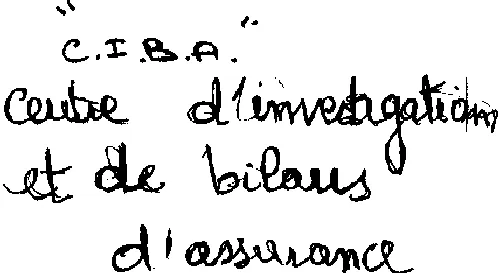 "C.I.B.A."
Centre d'investigation
et de bilans
d'assurance